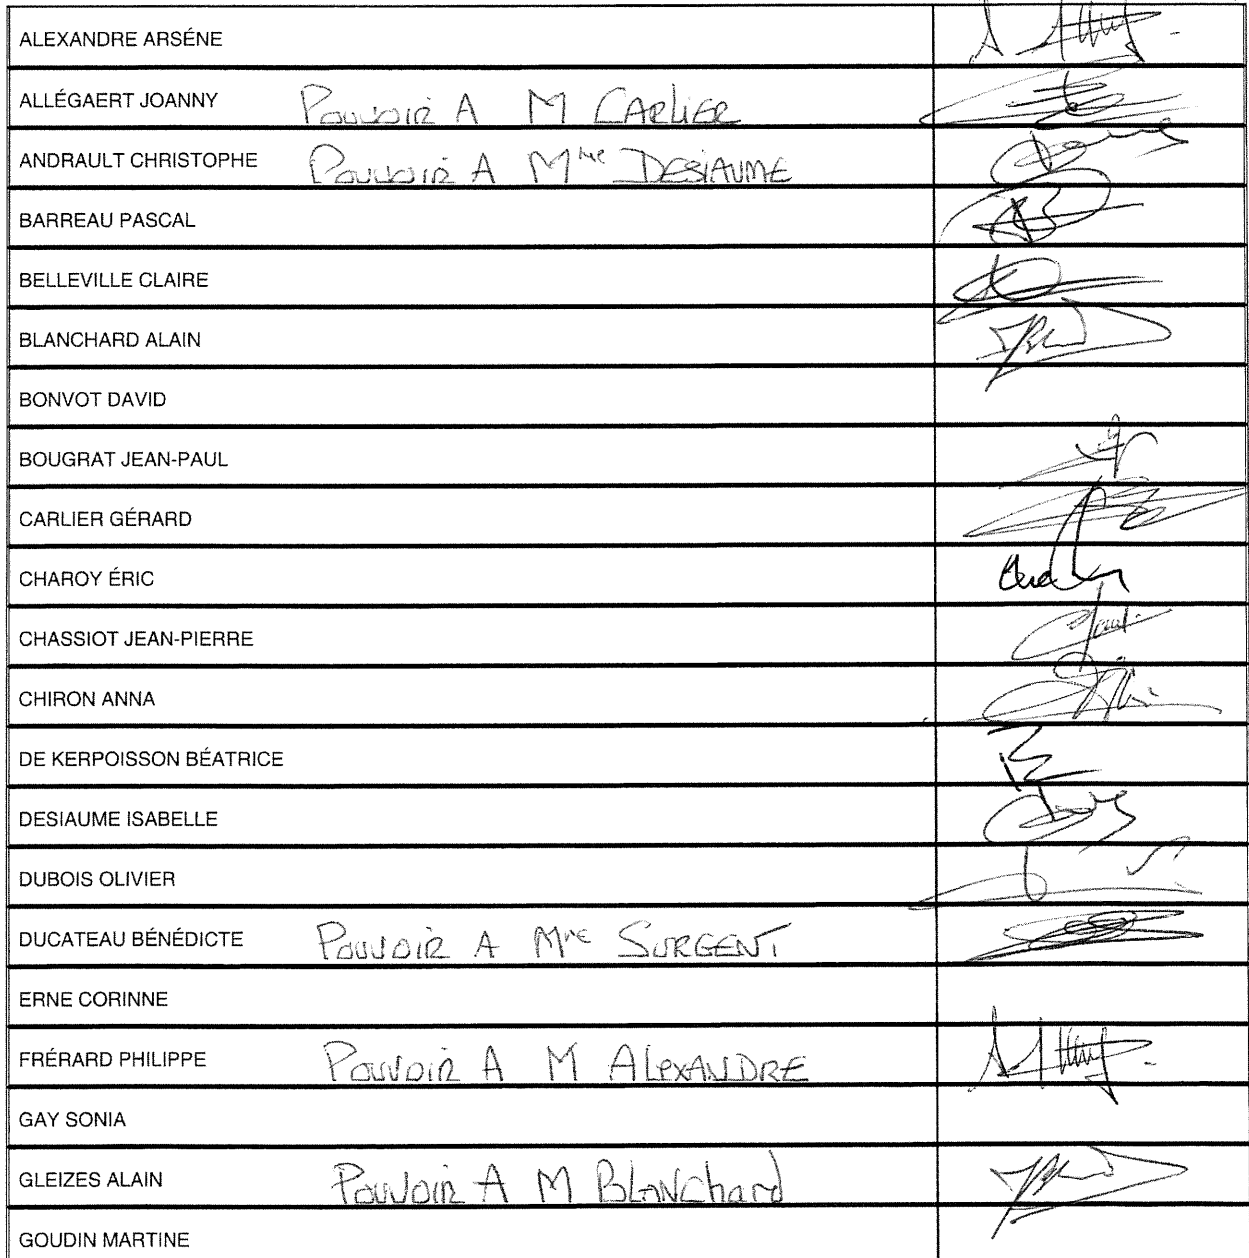 ALEXANDRE ARSÉNE
ALLÉGAERT JOANNY Pouvoir A M CARLIER
ANDRAULT CHRISTOPHE Pouvoir A Mme DESIAUME
BARREAU PASCAL
BELLEVILLE CLAIRE
BLANCHARD ALAIN
BONVOT DAVID
BOUGRAT JEAN-PAUL
CARLIER GÉRARD
CHAROY ÉRIC
CHASSIOT JEAN-PIERRE
CHIRON ANNA
DE KERPOISSON BÉATRICE
DESIAUME ISABELLE
DUBOIS OLIVIER
DUCATEAU BÉNÉDICTE Pouvoir A Mme SURGENT
ERNE CORINNE
FRÉRARD PHILIPPE Pouvoir A M ALEXANDRE
GAY SONIA
GLEIZES ALAIN Pouvoir A M BLANChard
GOUDIN MARTINE